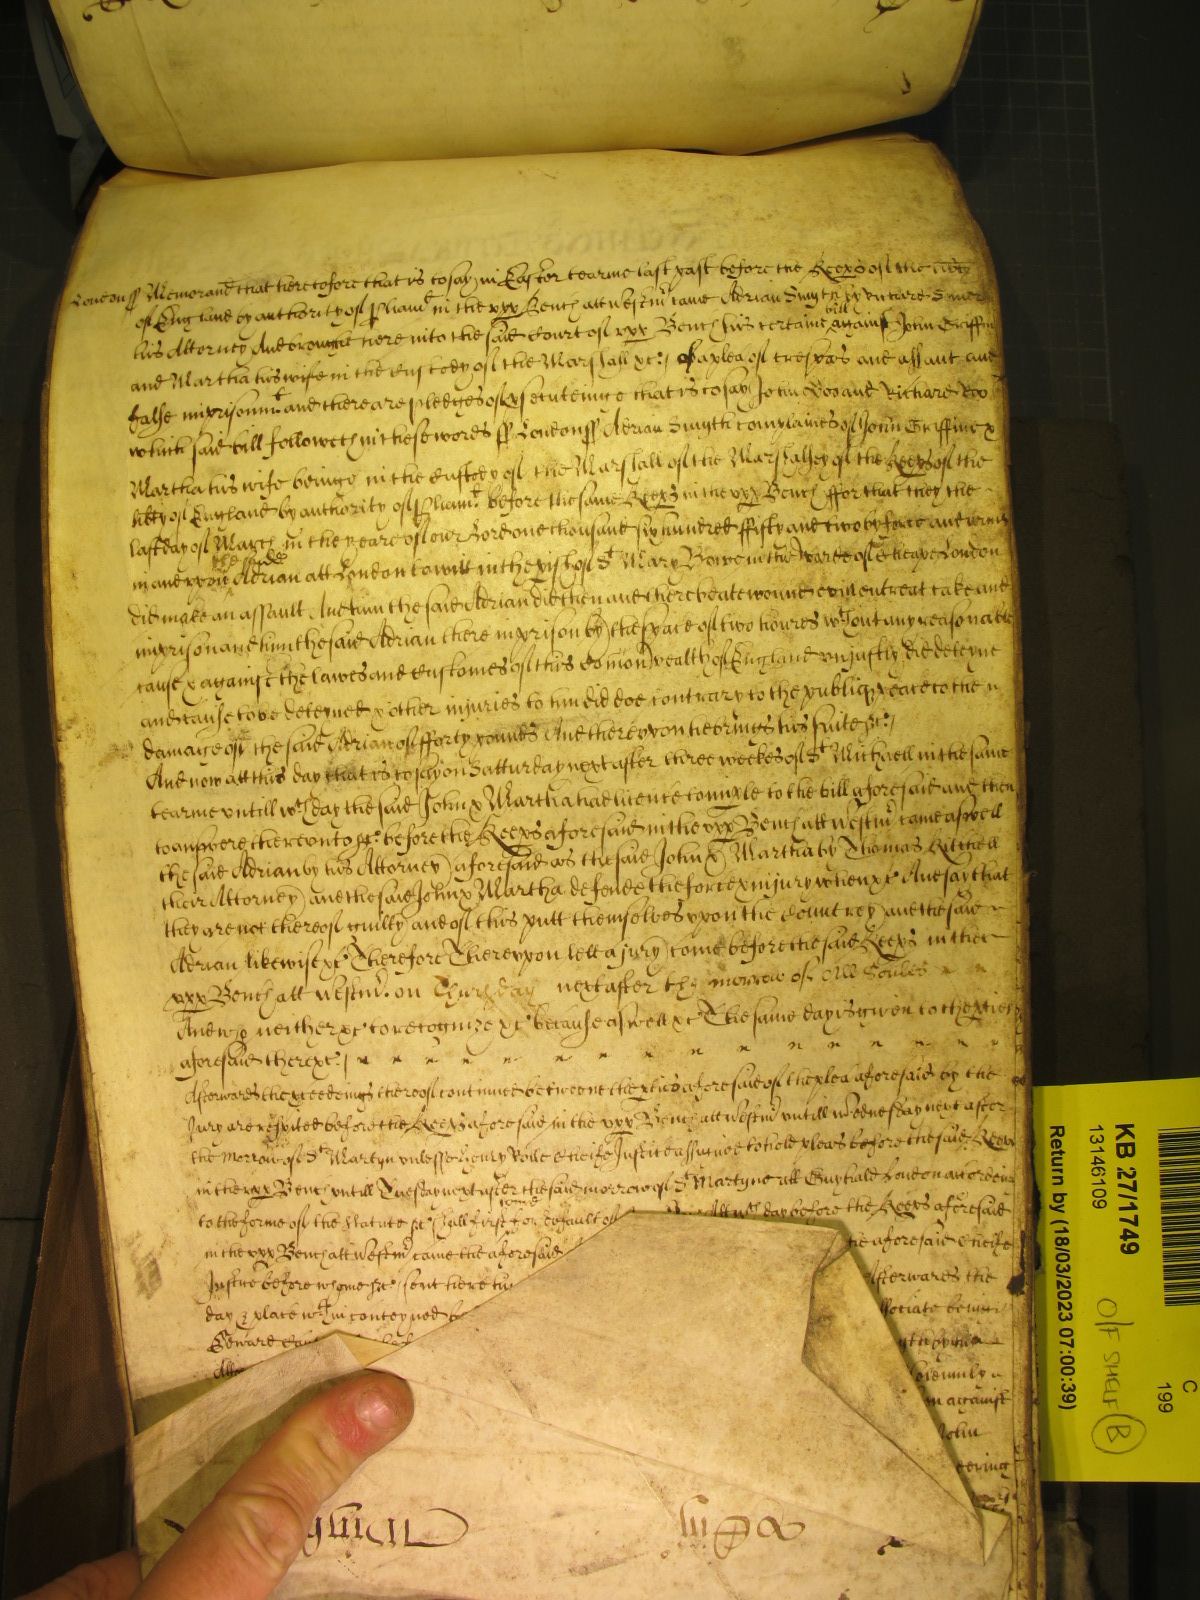 London ss Memorand that heretofore that is to say in Easter tearme last past before the Keeps of the libty
of England by authority of Pliamt in the upp Bench att Westmr came Adrian Smyth by
his Attorney And brought here into the said Court of upp Bench his certaine bill against John Griffin
and Martha his wife in the Custody of the Marshall &c; of a plea of trespas and assault and
false imprisonmt and there are pledges of psecuteinge that is to say John Doo and Richard Roo
which said bill followeth in these words ss London ss Adrian Smyth complaines of John Griffin &
Martha his wife beinge in the Custody of the Marshall of the Marshalsey of the Keeps of the
libty of England by authority of Pliamt before the same Keeps in the upp Bench ffor that they the
last day of March in the yeare of our Lord one thousand six hundred fifty and two by force and armes
in and upon the said Adrian att London to witt in the pish of St Mary Bowe in the warde of Cheape London
did make an assault And him the said Adrian did then and there beate wound evill entreat take and
imprison and him the said Adrian there in prison by the space of two houres wthout any reasonable
cause & against the lawes and Customes of this Comonwealth of England unjustly did deteyne
and cause to be deteyned & other injuries to him did doe contrary to the publiq peace to the
damage of the said Adrian of fforty pounds And thereupon he brings his suite &c;
And now att this day that is to say on Satturday next after three weekes of St Michaell in the same
tearme untill wch day the said John & Martha had licence to imple to the bill aforesaid and then
to answere thereunto &c: before the Keeps aforesaid in the upp Bench att Westmr came aswell
the said Adrian by his Attorney aforesaid as the said John & Martha by Thomas Kitchell
their Attorney and the said John & Martha defende the force & injury when &c And say that
they are not thereof guilty and of this putt themselves upon the Countrey and the said
Adrian likewise &c Therefore Thereupon lett a jury come before the said Keeps in the
upp Bench att Westmr. on Thursday next after the morrow of All Soules
And who neither &c to recognize &c because aswell &c The same day is given to the pties
aforesaid there &c;
Afterwards the pceedings thereof continued betweene the pties aforesaid of the plea aforesaid by the
Jury are respited before the Keeps aforesaid in the upp Bench att Westmr untill Wednesday next after
the morrow of St Martyn unlesse Henry Rolle Cheife Justice assigned to hold pleas before the said Keeps
in the upp Bench untill Tuesday next after the said morrow of St Martyne att Guyhald London accordinge
to the forme of the Statute &c shall first come for default of Att wch day before the Keeps aforesaid
in the upp Bench att Westmr came the aforesaid the aforesaid Cheife
Justice before whome &c; sent here Afterwards the
day & place wthin conteyned
solemnly
against
John
KB 27/1749
13146109
Return by (18/03/2023 07:00:39)
C
199
O/F SHELF B